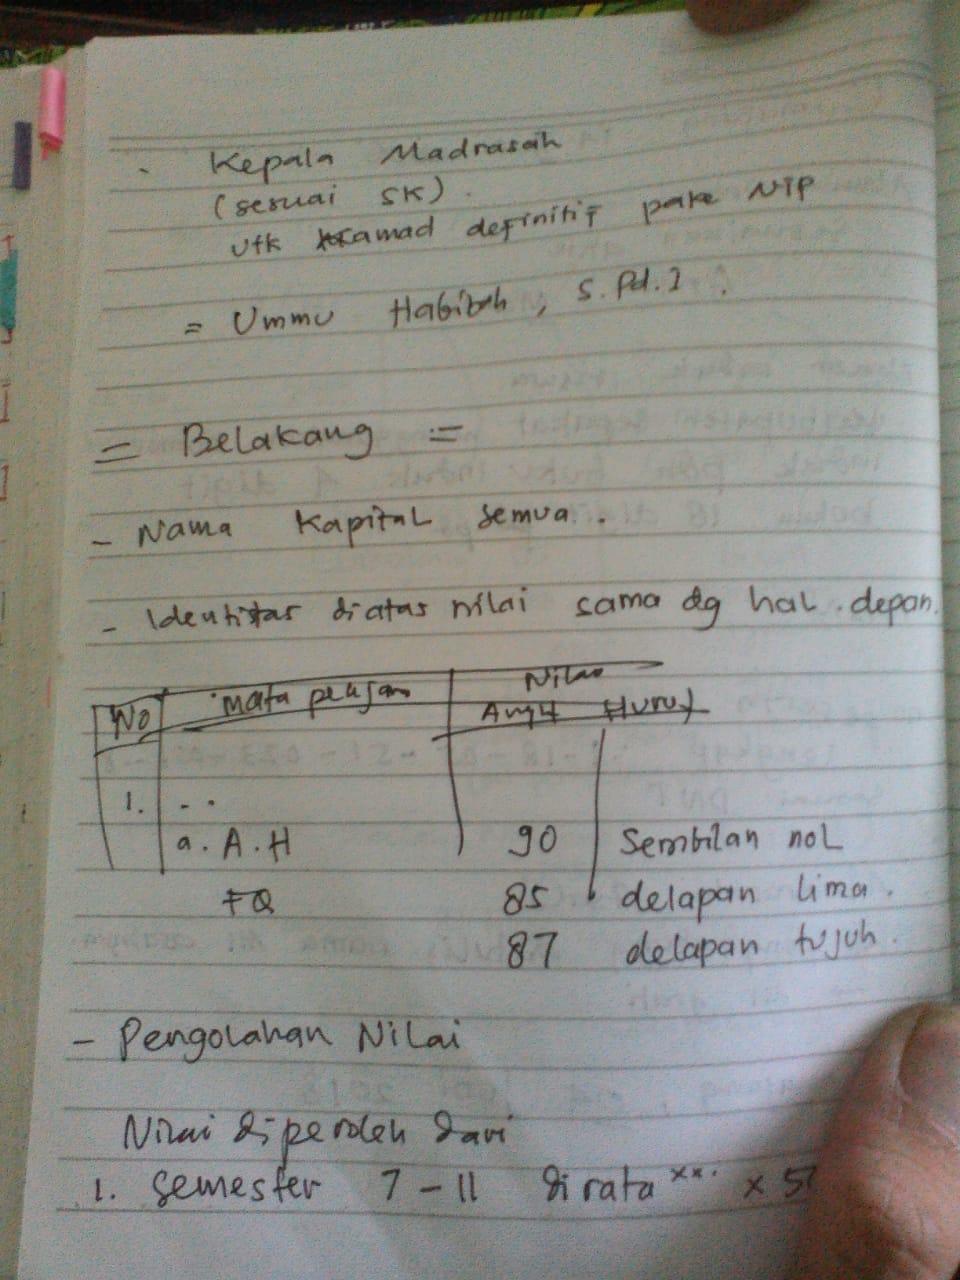 - Kepala Madrasah
(sesuai SK).
Utk Kamad definitif pake NIP
= Ummu Habibah, S.Pd.I.
= Belakang =
- Nama Kapital Semua.
- Identitas diatas nilai sama dg hal. depan.
No Mata pelajaran Nilai
Angk Huruf
1. ..
a. A.H 90 Sembilan nol
FQ 85 delapan lima.
87 delapan tujuh.
- Pengolahan Nilai
Nilai diperoleh dari
1. Semester 7 - 11 di rata xx. x 5